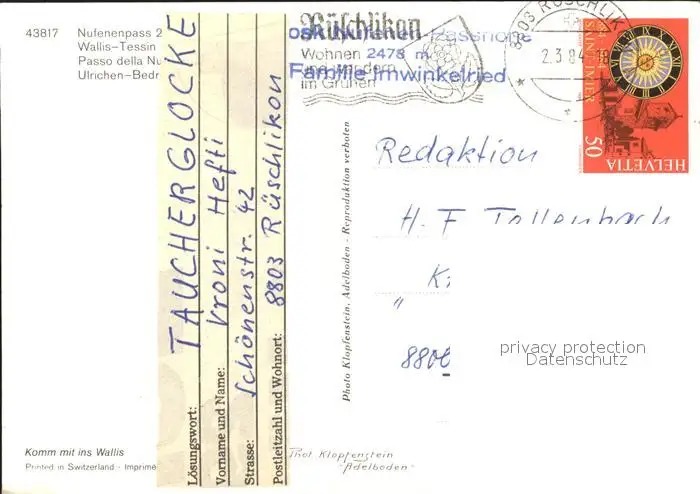 43817 Nufenenpass 2
Wallis-Tessin
Passo della Nu
Ulrichen-Bedr
Lösungswort: TAUCHERGLOCKE
Vorname und Name: Vroni Hefti
Strasse: Schönenstr. 42
Postleitzahl und Wohnort: 8803 Rüschlikon
Komm mit ins Wallis
Printed in Switzerland - Imprimé
Rüschlikon
Wohnen
im Grünen
2478 m
Familie Imwinkelried
8803 RÜSCHLIK
2.3.84
SAINT-IMIER
50
HELVETIA
Photo Klopfenstein, Adelboden - Reproduktion verboten
Redaktion
H. F. Tollenbach
K:
"
880
privacy protection
Datenschutz
Phot. Klopfenstein
"Adelboden"